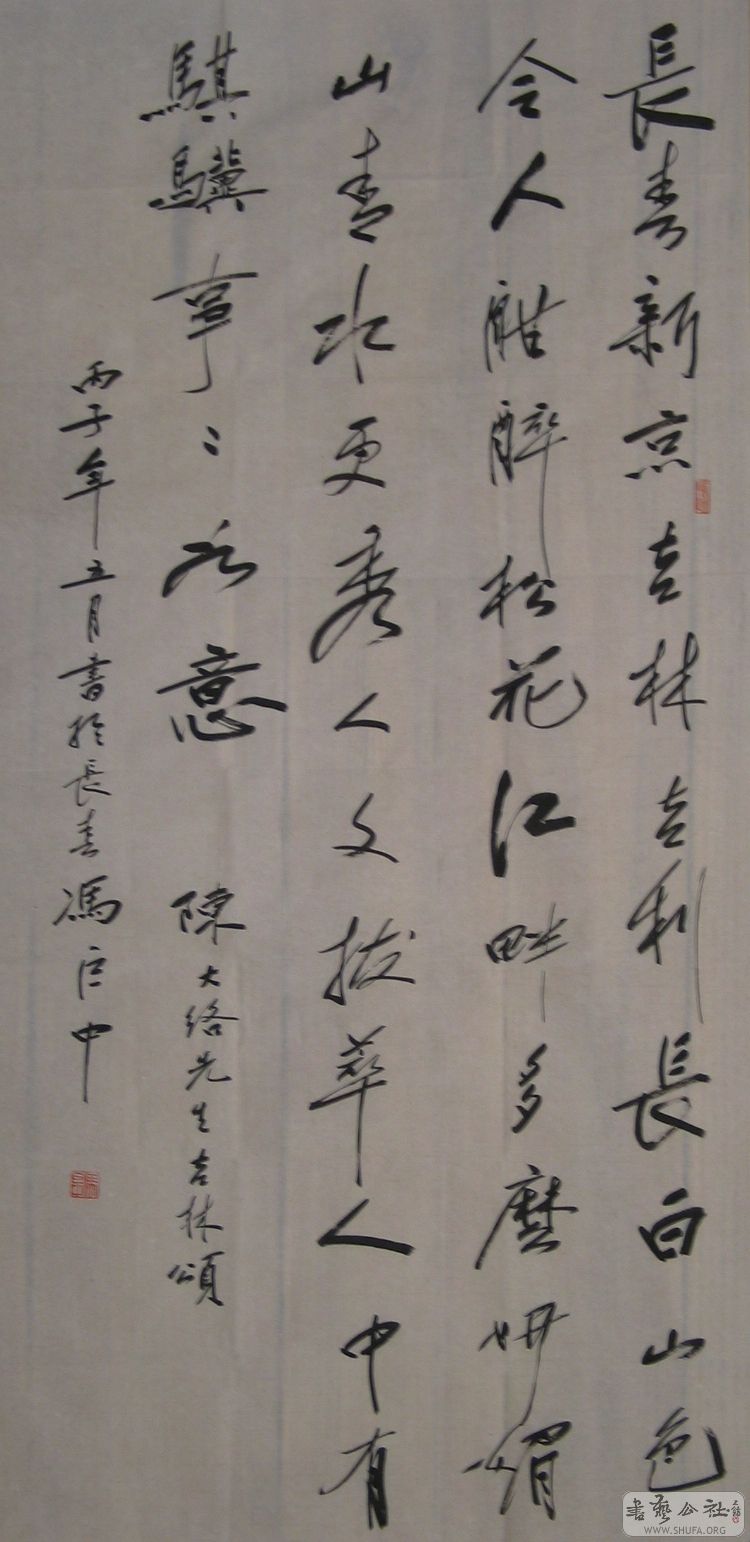 長春新京吉林吉利長白山色
令人酣醉松花江畔多麼妍媚
山青水更秀人文拔萃人中有
騏驥事〻如意 陳大络先生吉林頌
丙子年五月書於長春馮臣中
書藝公社
WWW.SHUFA.ORG